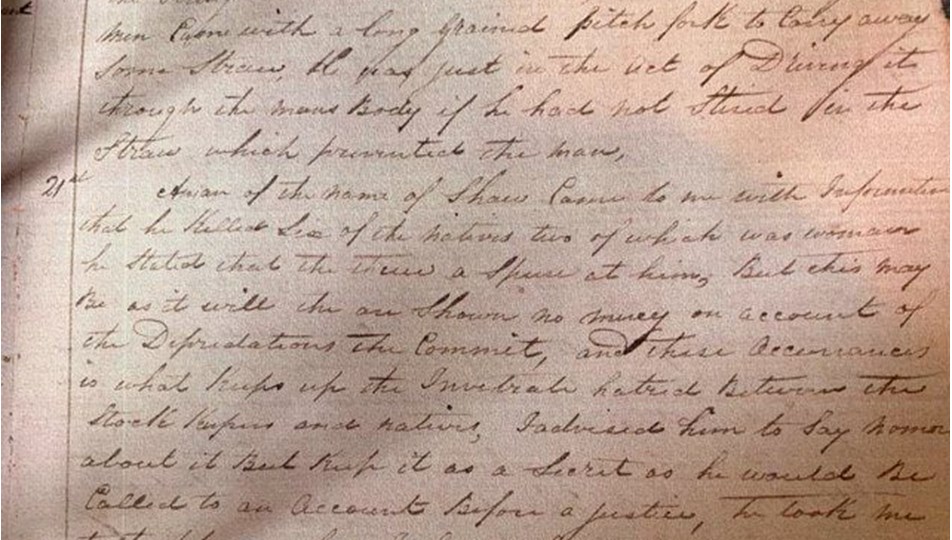 men Came with a long grained pitch fork to Carry away
Some Straw, he was just in the act of Driving it
through the mans Body if he had not Stired in the
Straw which prevented the man,
21st Aman of the name of Shaw Came to me with Information
that he Killed Six of the natives two of which was woman
he Stated that the threw a Spear at him, But this may
Be as it will the are Shown no mercy on account of
the Depredations the Commit, and these Occurrances
is what keeps up the Invetrate hatrid Between the
Stock Kepers and natives, Iadvised him to Say nomore
about it But Keep it as a Secret as he would Be
Called to an Account Before a justice, he took me